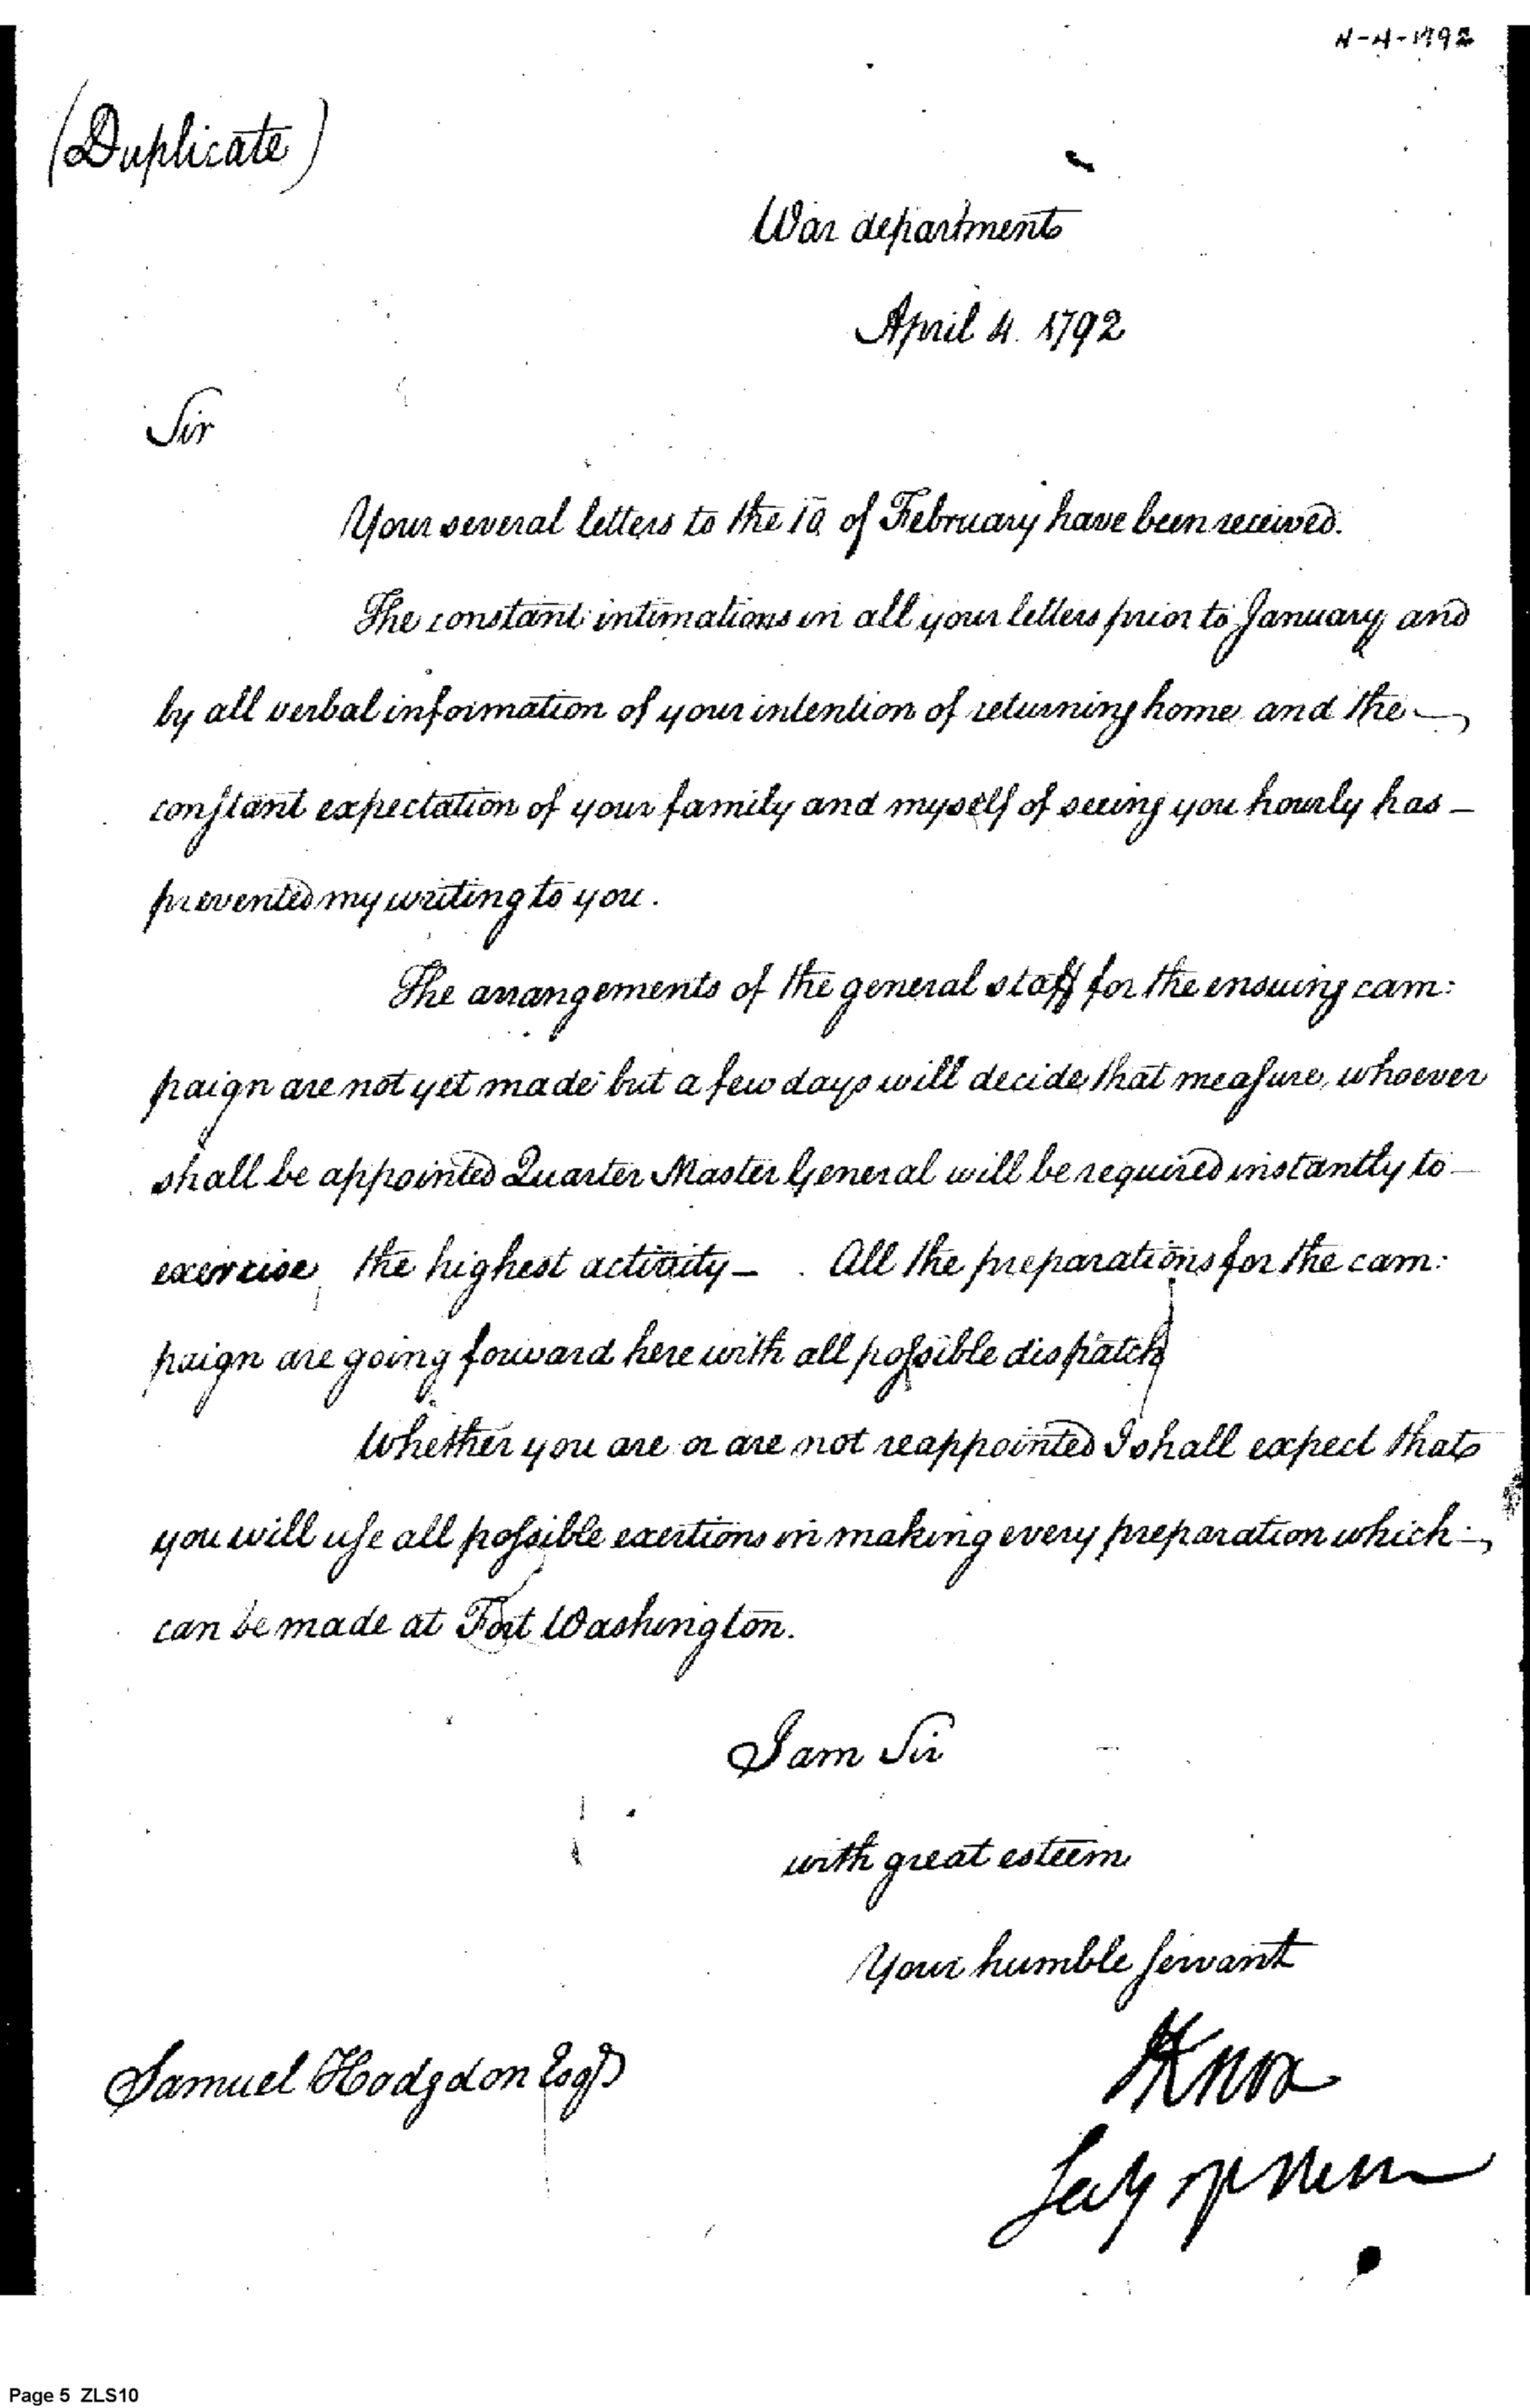 4-4-1792
(Duplicate)
War department
April 4. 1792
Sir
Your several letters to the 10 of February have been received.
The constant intimations in all your letters prior to January and
by all verbal information of your intention of returning home and the
conſtant expectation of your family and myself of seeing you hourly has –
prevented my writing to you.
The arrangements of the general staff for the ensuing cam:
paign are not yet made but a few days will decide that meaſure, whoever
shall be appointed Quarter Master General will be required instantly to
exercise the highest activity – . All the preparations for the cam:
paign are going forward here with all poſsible dispatch
Whether you are or are not reappointed I shall expect that
you will uſe all poſsible exertions in making every preparation which
can be made at Fort Washington.
I am Sir
with great esteem
Your humble ſervant
HKnox
Secy of War
Samuel Hodgdon Esqr
Page 5 ZLS10